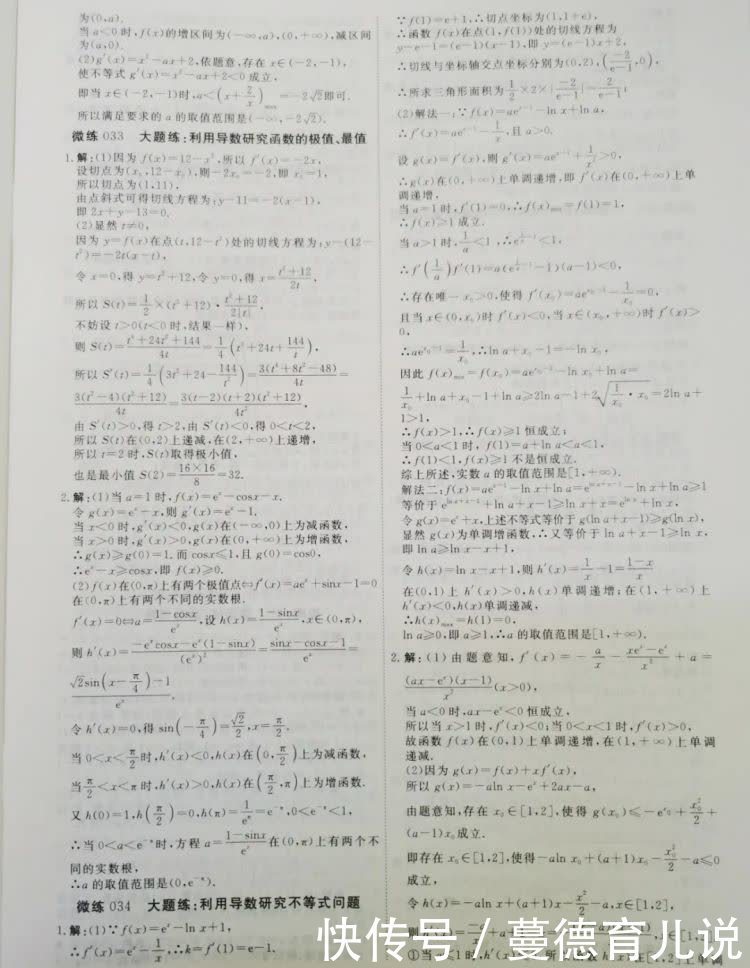 为(0,a).
当a<0时,f(x)的增区间为(-∞,a),(0,+∞),减区间
为(a,0).
(2)g′(x)=x²-ax+2,依题意,存在x∈(-2,-1),
使不等式g′(x)=x²-ax+2<0成立,
即当x∈(-2,-1)时,a<(x+2/x)max=-2√2即可.
所以满足要求的a的取值范围是(-∞,-2√2).
微练033 大题练:利用导数研究函数的极值、最值
1.解:(1)因为f(x)=12-x²,所以f′(x)=-2x,
设切点为(x₀,12-x₀²),则-2x₀=-2,即x₀=1,
所以切点为(1,11),
由点斜式可得切线方程为:y-11=-2(x-1),
即2x+y-13=0.
(2)显然t≠0,
因为y=f(x)在点(t,12-t²)处的切线方程为:y-(12-
t²)=-2t(x-t),
令x=0,得y=t²+12,令y=0,得x=(t²+12)/2t,
所以S(t)=1/2×(t²+12)·(t²+12)/2|t|,
不妨设t>0(t<0时,结果一样),
则S(t)=(t⁴+24t²+144)/4t=1/4(t³+24t+144/t),
所以S′(t)=1/4(3t²+24-144/t²)=3(t⁴+8t²-48)/4t²=
3(t²-4)(t²+12)/4t²=3(t-2)(t+2)(t²+12)/4t²,
由S′(t)>0,得t>2,由S′(t)<0,得0<t<2,
所以S(t)在(0,2)上递减,在(2,+∞)上递增,
所以t=2时,S(t)取得极小值,
也是最小值S(2)=16×16/8=32.
2.解:(1)当a=1时,f(x)=eˣ-cosx-x,
令g(x)=eˣ-x,则g′(x)=eˣ-1,
当x<0时,g′(x)<0,g(x)在(-∞,0)上为减函数,
当x>0时,g′(x)>0,g(x)在(0,+∞)上为增函数,
∴g(x)≥g(0)=1,而cosx≤1,且g(0)=cos0,
∴eˣ-x≥cosx,即f(x)≥0.
(2)f(x)在(0,π)上有两个极值点⇔f′(x)=aeˣ+sinx-1=0
在(0,π)上有两个不同的实数根.
f′(x)=0⇔a=(1-cosx)/eˣ,设h(x)=(1-sinx)/eˣ,x∈(0,π),
则h′(x)=(-eˣcosx-eˣ(1-sinx))/(eˣ)²=(sinx-cosx-1)/eˣ=
(√2sin(x-π/4)-1)/eˣ,
令h′(x)=0,得sin(-π/4)=√2/2,x=π/2.
当0<x<π/2时,h′(x)<0,h(x)在(0,π/2)上为减函数,
当π/2<x<π时,h′(x)>0,h(x)在(π/2,π)上为增函数.
又h(0)=1,h(π/2)=0,h(π)=1/e^π=e^-π,0<e^-π<1,
∴当0<a<e^-π时,方程a=(1-sinx)/eˣ在(0,π)上有两个不
同的实数根,
∴a的取值范围是(0,e^-π).
微练034 大题练:利用导数研究不等式问题
1.解:(1)∵f(x)=eˣ-lnx+1,
∴f′(x)=eˣ-1/x,∴k=f′(1)=e-1.
∵f(1)=e+1,∴切点坐标为(1,1+e),
∴函数f(x)在点(1,f(1))处的切线方程为
y-e-1=(e-1)(x-1),即y=(e-1)x+2,
∴切线与坐标轴交点坐标分别为(0,2),(-2/(e-1),0),
∴所求三角形面积为1/2×2×|-2/(e-1)|=2/(e-1);
(2)解法一:∵f(x)=ae^(x-1)-lnx+lna,
∴f′(x)=ae^(x-1)-1/x,且a>0.
设g(x)=f′(x),则g′(x)=ae^(x-1)+1/x²>0,
∴g(x)在(0,+∞)上单调递增,即f′(x)在(0,+∞)上单
调递增,
当a=1时,f′(1)=0,∴f(x)min=f(1)=1,
∴f(x)≥1成立.
当a>1时,1/a<1,∴e^(1/a-1)<1,
∴f′(1/a)f′(1)=a(e^(1/a-1)-1)(a-1)<0,
∴存在唯一x₀>0,使得f′(x₀)=ae^(x₀-1)-1/x₀=0,
且当x∈(0,x₀)时f′(x)<0,当x∈(x₀,+∞)时f′(x)>
0,
∴ae^(x₀-1)=1/x₀,∴lna+x₀-1=-lnx₀,
因此f(x)min=f(x₀)=ae^(x₀-1)-lnx₀+lna=
1/x₀+lna+x₀-1+lna≥2lna-1+2√(1/x₀·x₀)=2lna+
1>1,
∴f(x)>1,∴f(x)≥1恒成立;
当0<a<1时,f(1)=a+lna<a<1,
∴f(1)<1,f(x)≥1不是恒成立.
综上所述,实数a的取值范围是[1,+∞).
解法二:f(x)=ae^(x-1)-lnx+lna=e^(lna+x-1)-lnx+lna≥1
等价于e^(lna+x-1)+lna+x-1≥lnx+x=e^(lnx)+lnx,
令g(x)=eˣ+x,上述不等式等价于g(lna+x-1)≥g(lnx),
显然g(x)为单调增函数,∴又等价于lna+x-1≥lnx,
即lna≥lnx-x+1,
令h(x)=lnx-x+1,则h′(x)=1/x-1=(1-x)/x
在(0,1)上h′(x)>0,h(x)单调递增;在(1,+∞)上
h′(x)<0,h(x)单调递减,
∴h(x)max=h(1)=0,
lna≥0,即a≥1,∴a的取值范围是[1,+∞).
2.解:(1)由题意知,f′(x)=-a/x-(xeˣ-eˣ)/x²+a=
(ax-eˣ)(x-1)/x²(x>0),
当a<0时,ax-eˣ<0恒成立,
所以当x>1时,f′(x)<0;当0<x<1时,f′(x)>0,
故函数f(x)在(0,1)上单调递增,在(1,+∞)上单调
递减.
(2)因为g(x)=f(x)+xf′(x),
所以g(x)=-alnx-eˣ+2ax-a,
由题意知,存在x₀∈[1,2],使得g(x₀)≤-e^x₀+x₀²/2+
(a-1)x₀成立.
即存在x₀∈[1,2],使得-alnx₀+(a+1)x₀-x₀²/2-a≤0
成立,
令h(x)=-alnx+(a+1)x-x²/2-a,x∈[1,2],
①当a≤1时
快传号/蔓德育儿说